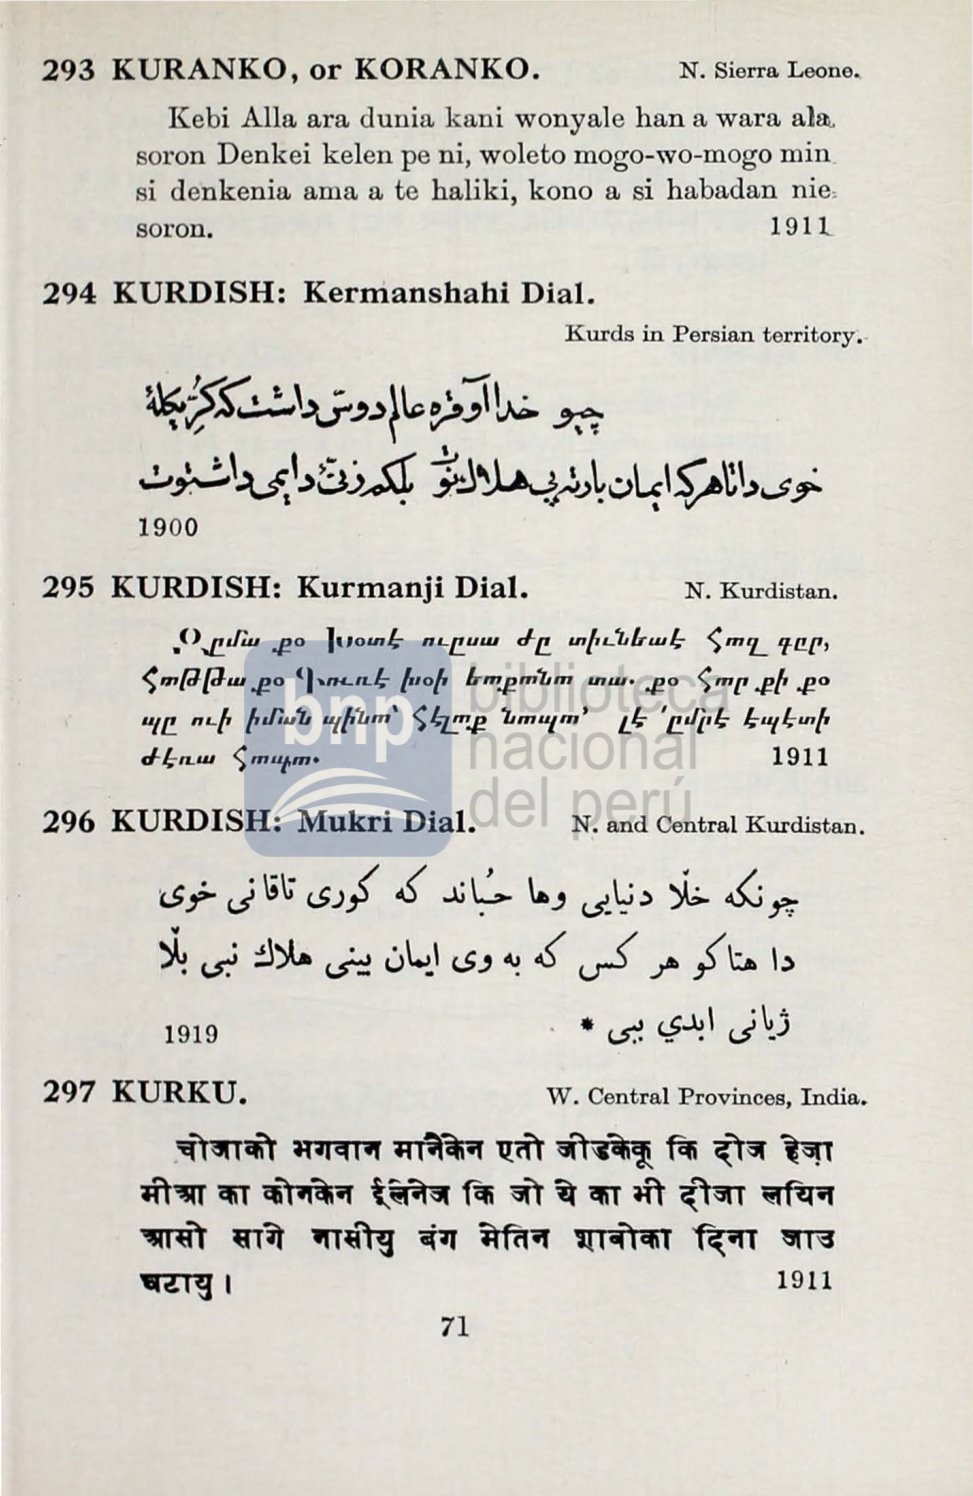 293 KURANKO, or KORANKO. N. Sierra Leone.
Kebi Alla ara dunia kani wonyale han a wara ala
soron Denkei kelen pe ni, woleto mogo-wo-mogo min
si denkenia ama a te haliki, kono a si habadan nie
soron. 1911
294 KURDISH: Kermanshahi Dial.
Kurds in Persian territory.
چیو خدا آوقره عالم دوس داشت که کر یکله
خوی داتا هرکه ایمان بارته پی هلاک نو بلکم زنی دایمی داشتوت
1900
295 KURDISH: Kurmanji Dial. N. Kurdistan.
քօ Խօտէ ուրսա ժը տիւնեաէ Հոդ գըր,
ՀոԹԹա քօ խօի եոքոնո տա. քօ Հոր քի քօ
պը ուի իման պինո՝ Հէլոք նոպո՚ լէ ՚ըմրէ էպէտի
ժէռա Հոպո. 1911
296 KURDISH: Mukri Dial. N. and Central Kurdistan.
چونکه خلّا دنیایی وها حُبّاند که کوری تاقانی خوی
دا هتاکو هر کس که به وی ایمان بینی هلاك نبی بلّا
ژیانی ابدي ببی *
1919
297 KURKU. W. Central Provinces, India.
चोजाको भगवान मानैकेन एतो जीडकेकू कि दीज हेज़ा
मीआ का कोनकेन ईलेनेज कि जो ये का भी दीजा लयिन
आसो सागे नासीयु बंग मेतिन शाबोका दिना जाउ
घटायु । 1911
71
bnp biblioteca
nacional
del perú